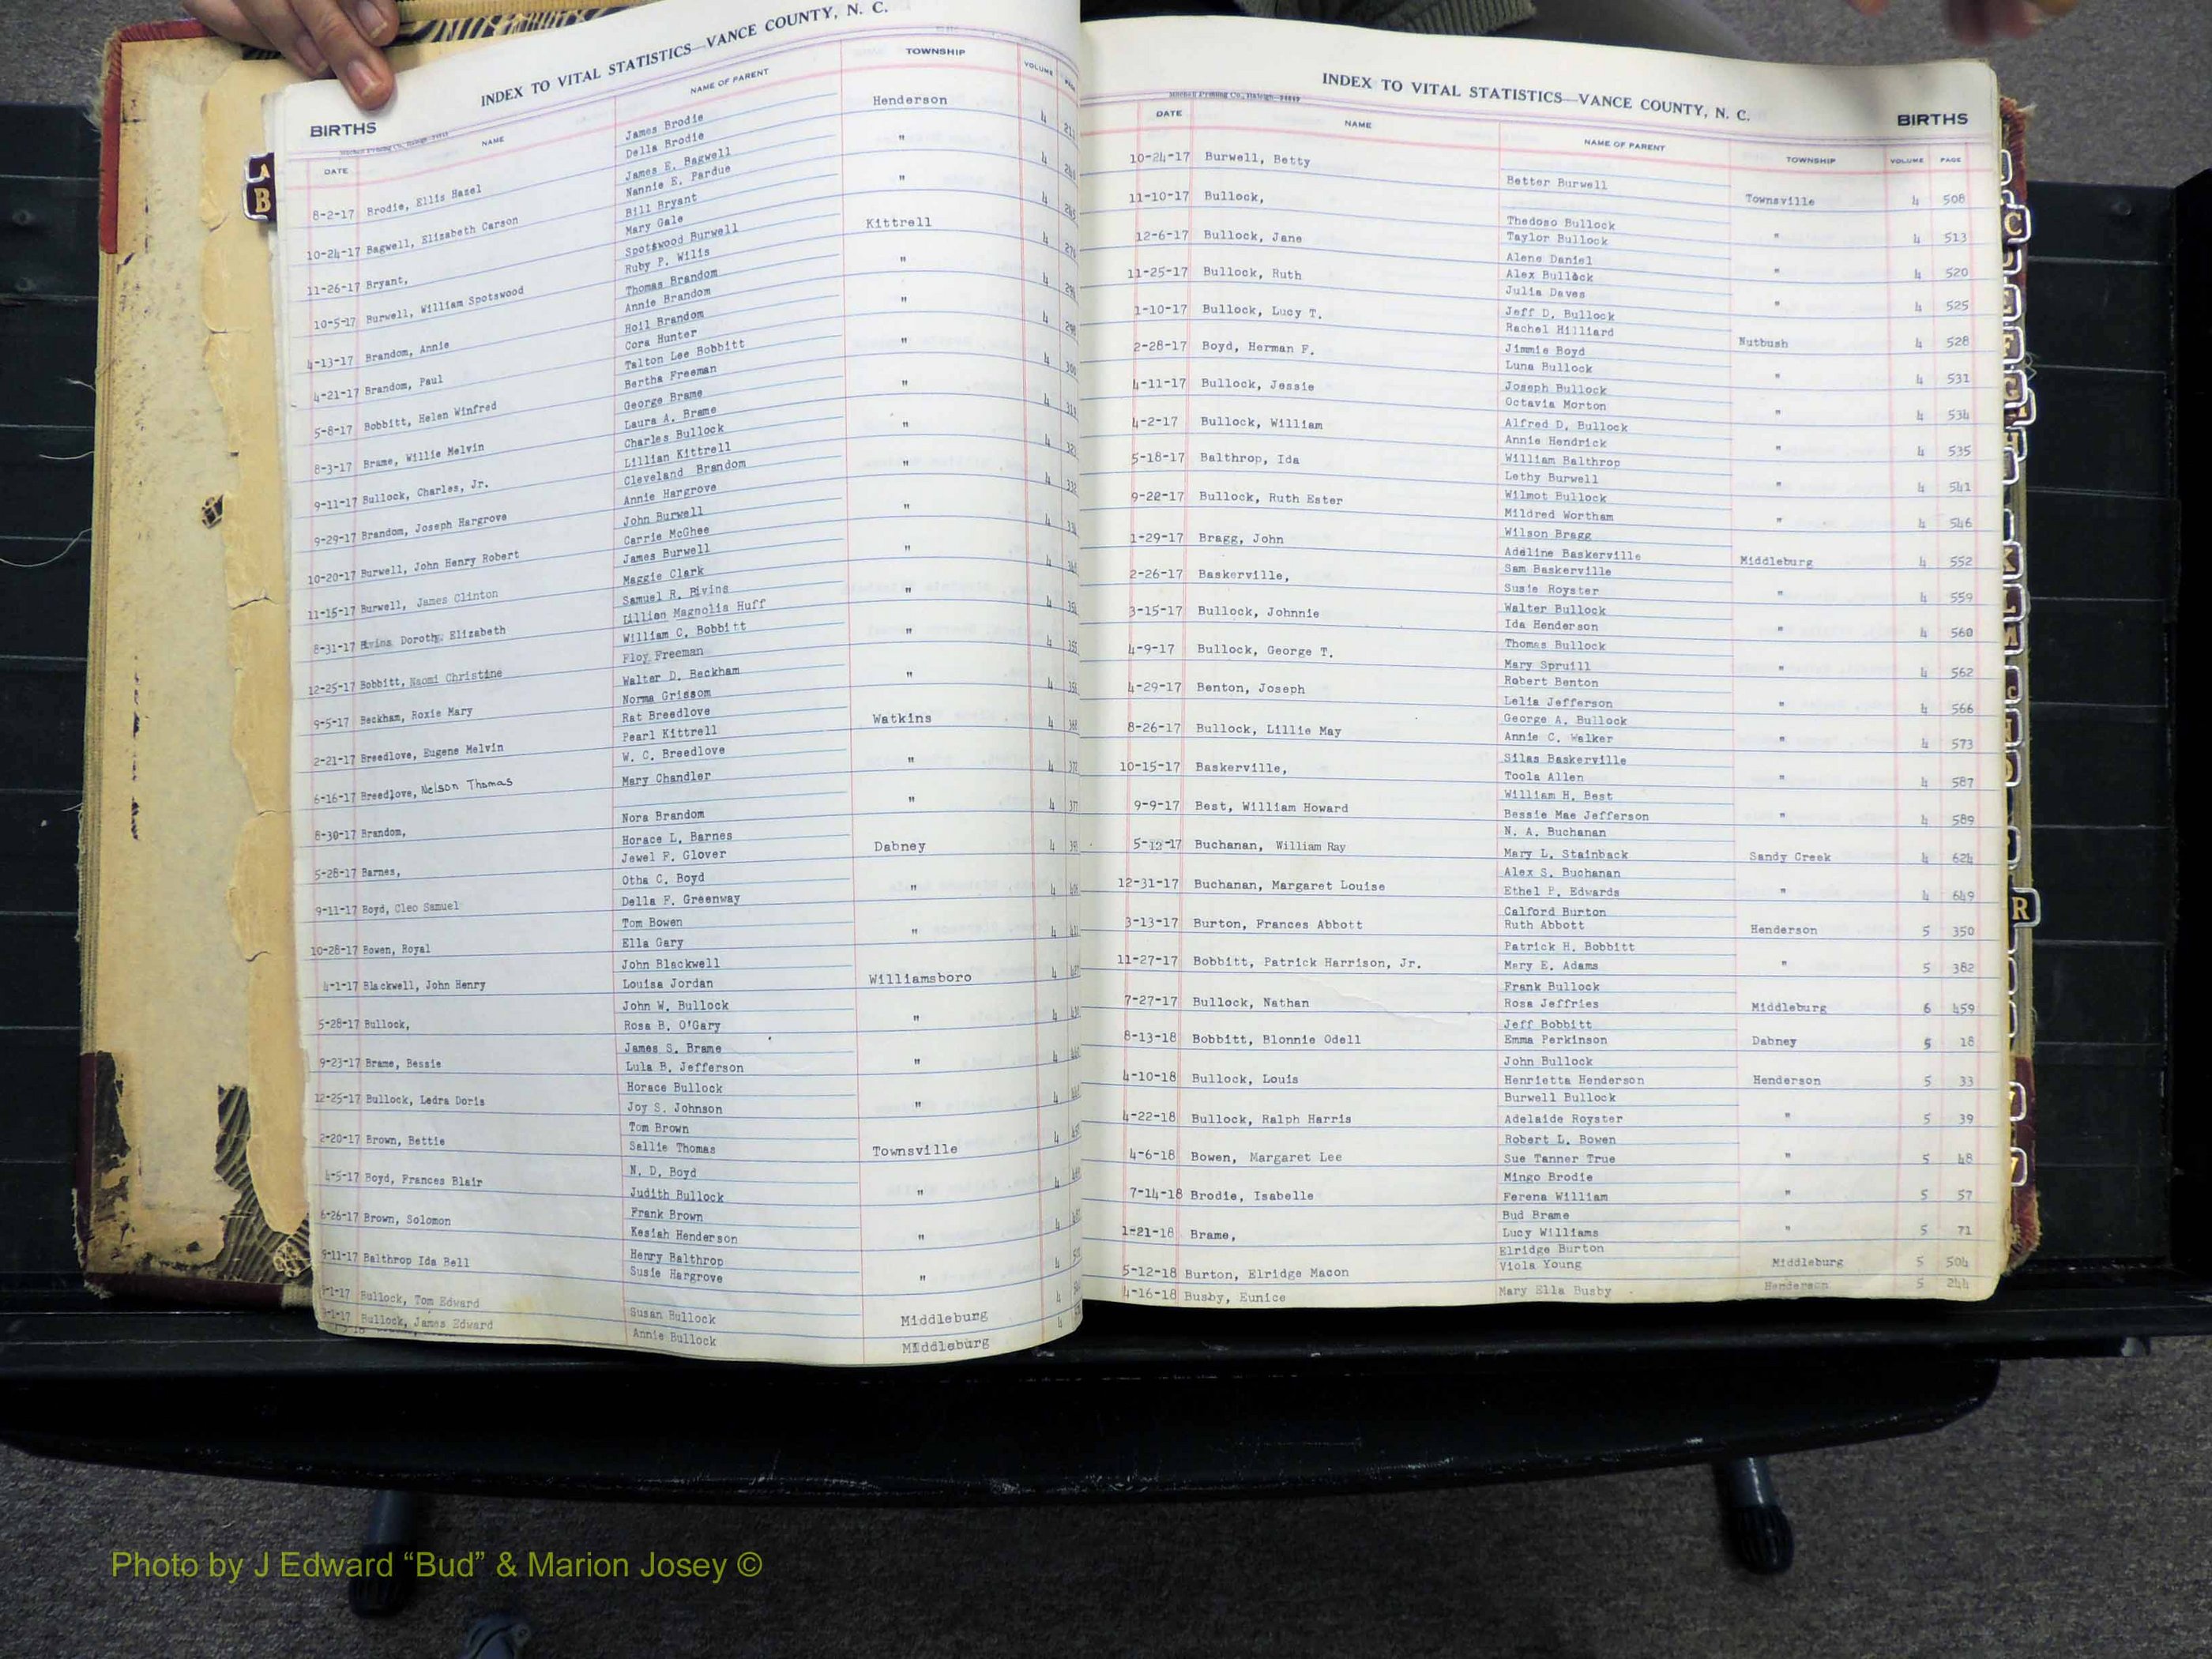 INDEX TO VITAL STATISTICS—VANCE COUNTY, N. C.
BIRTHS
DATE NAME NAME OF PARENT TOWNSHIP VOLUME
8-2-17 Brodie, Ellis Hazel James Brodie Henderson 4
Della Brodie
10-24-17 Bagwell, Elizabeth Carson James E. Bagwell " 4
Nannie E. Pardue
11-26-17 Bryant, Bill Bryant " 4
Mary Gale
10-5-17 Burwell, William Spotswood Spotswood Burwell Kittrell 4
Ruby P. Wilis
4-13-17 Brandom, Annie Thomas Brandom " 4
Annie Brandom
4-21-17 Brandom, Paul Hoil Brandom " 4
Cora Hunter
5-8-17 Bobbitt, Helen Winfred Talton Lee Bobbitt " 4
Bertha Freeman
8-3-17 Brame, Willie Melvin George Brame " 4
Laura A. Brame
9-11-17 Bullock, Charles, Jr. Charles Bullock " 4
Lillian Kittrell
9-29-17 Brandom, Joseph Hargrove Cleveland Brandom " 4
Annie Hargrove
10-20-17 Burwell, John Henry Robert John Burwell " 4
Carrie McGhee
11-15-17 Burwell, James Clinton James Burwell " 4
Maggie Clark
8-31-17 Bivins Dorothy Elizabeth Samuel R. Bivins " 4
Lillian Magnolia Huff
12-25-17 Bobbitt, Naomi Christine William C. Bobbitt " 4
Floy Freeman
9-5-17 Beckham, Roxie Mary Walter D. Beckham " 4
Norma Grissom
2-21-17 Breedlove, Eugene Melvin Rat Breedlove Watkins 4
Pearl Kittrell
6-16-17 Breedlove, Nelson Thomas W. C. Breedlove " 4
Mary Chandler
8-30-17 Brandom, " 4
Nora Brandom
5-28-17 Barnes, Horace L. Barnes Dabney 4
Jewel F. Glover
9-11-17 Boyd, Cleo Samuel Otha C. Boyd " 4
Della F. Greenway
10-28-17 Bowen, Royal Tom Bowen " 4
Ella Gary
4-1-17 Blackwell, John Henry John Blackwell Williamsboro 4
Louisa Jordan
5-28-17 Bullock, John W. Bullock " 4
Rosa B. O'Gary
9-23-17 Brame, Bessie James S. Brame " 4
Lula B. Jefferson
12-25-17 Bullock, Ledra Doris Horace Bullock " 4
Joy S. Johnson
2-20-17 Brown, Bettie Tom Brown Townsville 4
Sallie Thomas
4-5-17 Boyd, Frances Blair N. D. Boyd " 4
Judith Bullock
6-26-17 Brown, Solomon Frank Brown " 4
Kesiah Henderson
9-11-17 Balthrop Ida Bell Henry Balthrop " 4
Susie Hargrove
Bullock, Tom Edward Susan Bullock Middleburg 4
Bullock, James Edward Annie Bullock Middleburg 4
INDEX TO VITAL STATISTICS—VANCE COUNTY, N. C.
BIRTHS
DATE NAME NAME OF PARENT TOWNSHIP VOLUME PAGE
10-24-17 Burwell, Betty Townsville 4 508
Better Burwell
11-10-17 Bullock, Thedoso Bullock " 4 513
Taylor Bullock
12-6-17 Bullock, Jane Alene Daniel " 4 520
Alex Bullock
11-25-17 Bullock, Ruth Julia Daves " 4 525
Jeff D. Bullock
1-10-17 Bullock, Lucy T. Rachel Hilliard Nutbush 4 528
2-28-17 Boyd, Herman F. Jimmie Boyd " 4 531
Luna Bullock
4-11-17 Bullock, Jessie Joseph Bullock " 4 534
Octavia Morton
4-2-17 Bullock, William Alfred D. Bullock " 4 535
Annie Hendrick
5-18-17 Balthrop, Ida William Balthrop " 4 541
Lethy Burwell
9-22-17 Bullock, Ruth Ester Wilmot Bullock " 4 546
Mildred Wortham
1-29-17 Bragg, John Wilson Bragg Middleburg 4 552
Adeline Baskerville
2-26-17 Baskerville, Sam Baskerville " 4 559
Susie Royster
3-15-17 Bullock, Johnnie Walter Bullock " 4 560
Ida Henderson
4-9-17 Bullock, George T. Thomas Bullock " 4 562
Mary Spruill
4-29-17 Benton, Joseph Robert Benton " 4 566
Lelia Jefferson
8-26-17 Bullock, Lillie May George A. Bullock " 4 573
Annie C. Walker
10-15-17 Baskerville, Silas Baskerville " 4 587
Toola Allen
9-9-17 Best, William Howard William H. Best " 4 589
Bessie Mae Jefferson
5-12-17 Buchanan, William Ray N. A. Buchanan Sandy Creek 4 624
Mary L. Stainback
12-31-17 Buchanan, Margaret Louise Alex S. Buchanan " 4 649
Ethel P. Edwards
3-13-17 Burton, Frances Abbott Calford Burton Henderson 5 350
Ruth Abbott
11-27-17 Bobbitt, Patrick Harrison, Jr. Patrick H. Bobbitt " 5 382
Mary E. Adams
7-27-17 Bullock, Nathan Frank Bullock Middleburg 6 459
Rosa Jeffries
8-13-18 Bobbitt, Blonnie Odell Jeff Bobbitt Dabney 5 18
Emma Perkinson
4-10-18 Bullock, Louis John Bullock Henderson 5 33
Henrietta Henderson
4-22-18 Bullock, Ralph Harris Burwell Bullock " 5 39
Adelaide Royster
4-6-18 Bowen, Margaret Lee Robert L. Bowen " 5 48
Sue Tanner True
7-14-18 Brodie, Isabelle Mingo Brodie " 5 57
Ferena William
1-21-18 Brame, Bud Brame " 5 71
Lucy Williams
5-12-18 Burton, Elridge Macon Elridge Burton Middleburg 5 504
Viola Young
4-16-18 Busby, Eunice Mary Ella Busby Henderson 5 244
A
B
C
R
Photo by J Edward “Bud” & Marion Josey ©